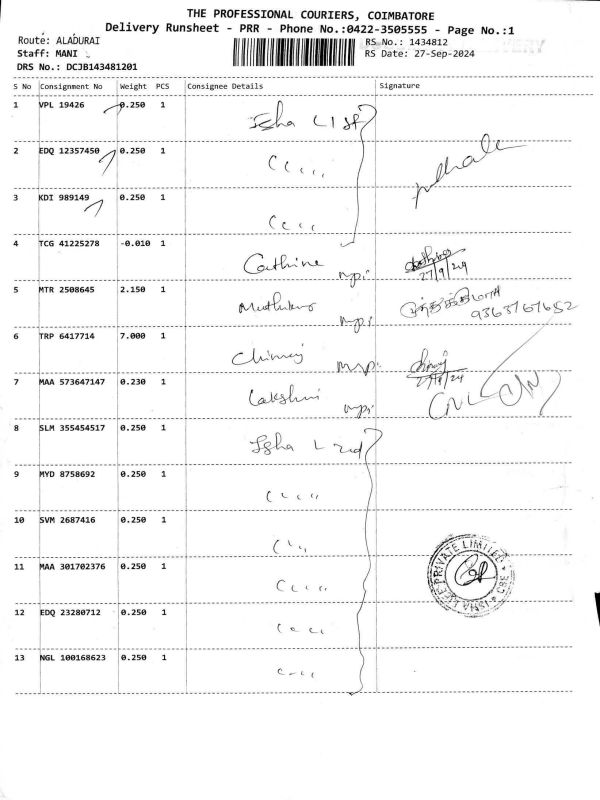 THE PROFESSIONAL COURIERS, COIMBATORE
Delivery Runsheet - PRR - Phone No.:0422-3505555 - Page No.:1
Route: ALADURAI
RS No.: 1434812
Staff: MANI
RS Date: 27-Sep-2024
DRS No.: DCJB143481201
S No Consignment No Weight PCS Consignee Details Signature
1 VPL 19426 0.250 1 Isha
2 EDQ 12357450 0.250 1
3 KDI 989149 0.250 1
4 TCG 41225278 -0.010 1 Cathrine
27/9/24
5 MTR 2508645 2.150 1 Muthukumar முத்துக்குமார்
9363767652
6 TRP 6417714 7.000 1
7 MAA 573647147 0.230 1 Lakshmi
8 SLM 355454517 0.250 1 Isha
9 MYD 8758692 0.250 1
10 SVM 2687416 0.250 1
11 MAA 301702376 0.250 1
ISHA LIFE PRIVATE LIMITED CBE
12 EDQ 23280712 0.250 1
13 NGL 100168623 0.250 1